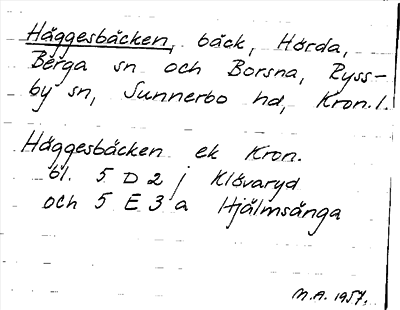 Häggesbäcken, bäck, Hörda,
Berga sn och Borsna, Ryss-
by sn, Sunnerbo hd, Kron. l.
Häggesbäcken ek Kron.
bl. 5 D 2 j Klövaryd
och 5 E 3 a Hjälmsånga
M.A. 1957.